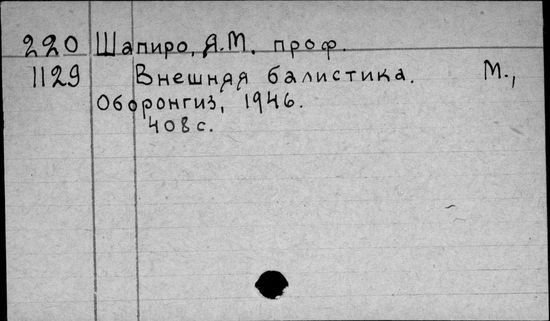 220 Шапиро, Я.М. проф.
1129 Внешняя балистика. М.,
Оборонгиз, 1946.
408 с.